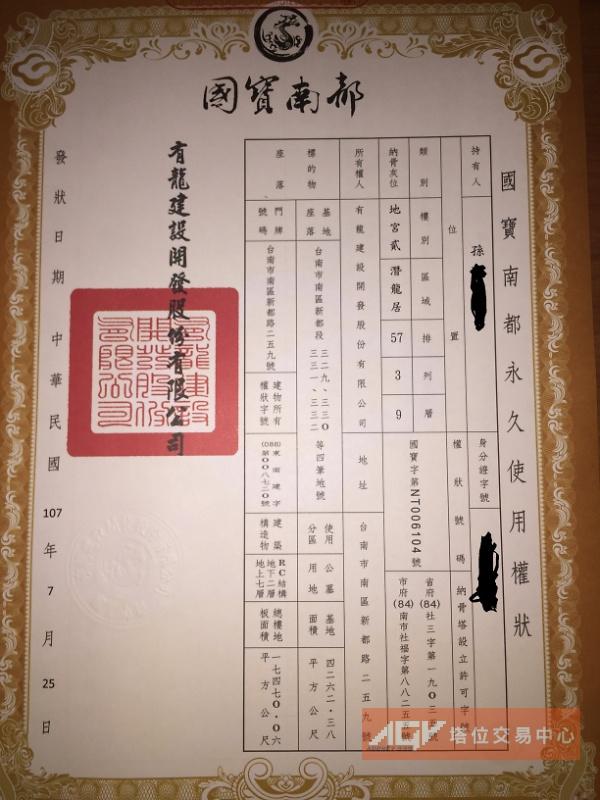 國寶南都
國寶南都永久使用權狀
持有人
孫
身分證字號
類別
納骨灰位
位置
樓別
區域
排
列
層
地宮貳
潛龍居
57
3
9
權狀號碼
國寶字第NT006104號
納骨塔設立許可字號
省府(84)社三字第一九0三
市府(84)南市社福字第八八二五五
所有權人
有龍建設開發股份有限公司
地址
台南市南區新都路二五九號
標的物座落
基地座落
台南市南區新都段
三二九、三三0
三三一、三三二
等四筆地號
使用分區
公墓用地
基地面積
四二六二.三八平方公尺
門牌號碼
台南市南區新都路二五九號
建物所有權狀字號
(088)東南建字
第00八七二0號
建築構造物
RC結構
地下二層
地上七層
總樓地板面積
一七四七0.0六平方公尺
有龍建設開發股份有限公司
發狀日期 中華民國 107 年 7 月 25 日
有龍建設開發股份有限公司
AGY 塔位交易中心